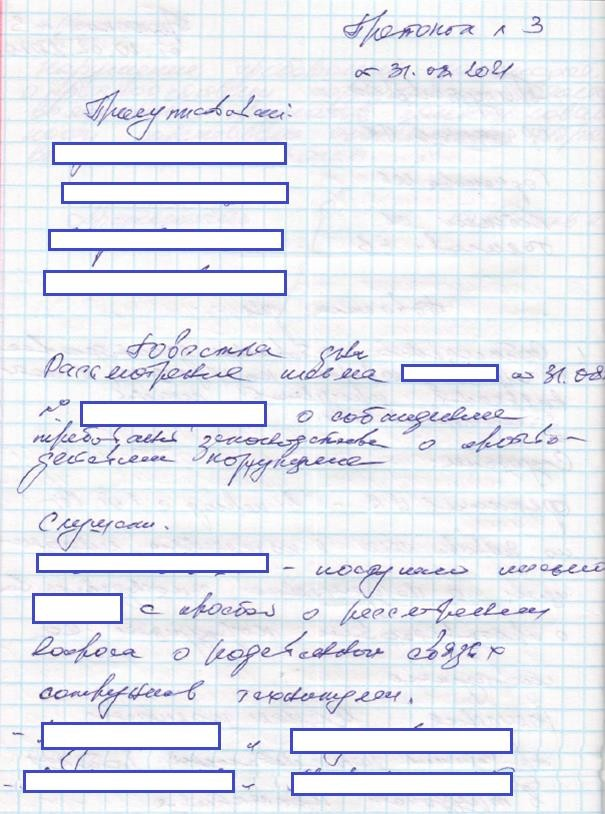 Протокол № 3
от 31.08.2021
Присутствовали:
Повестка дня
Рассмотрение письма от 31.08.
№ о соблюдении
требований законодательства о противо-
действии коррупции
Слушали.
- поступило письмо
с просьбой о рассмотрении
вопроса о родственных связях
сотрудников техникума.
-
-